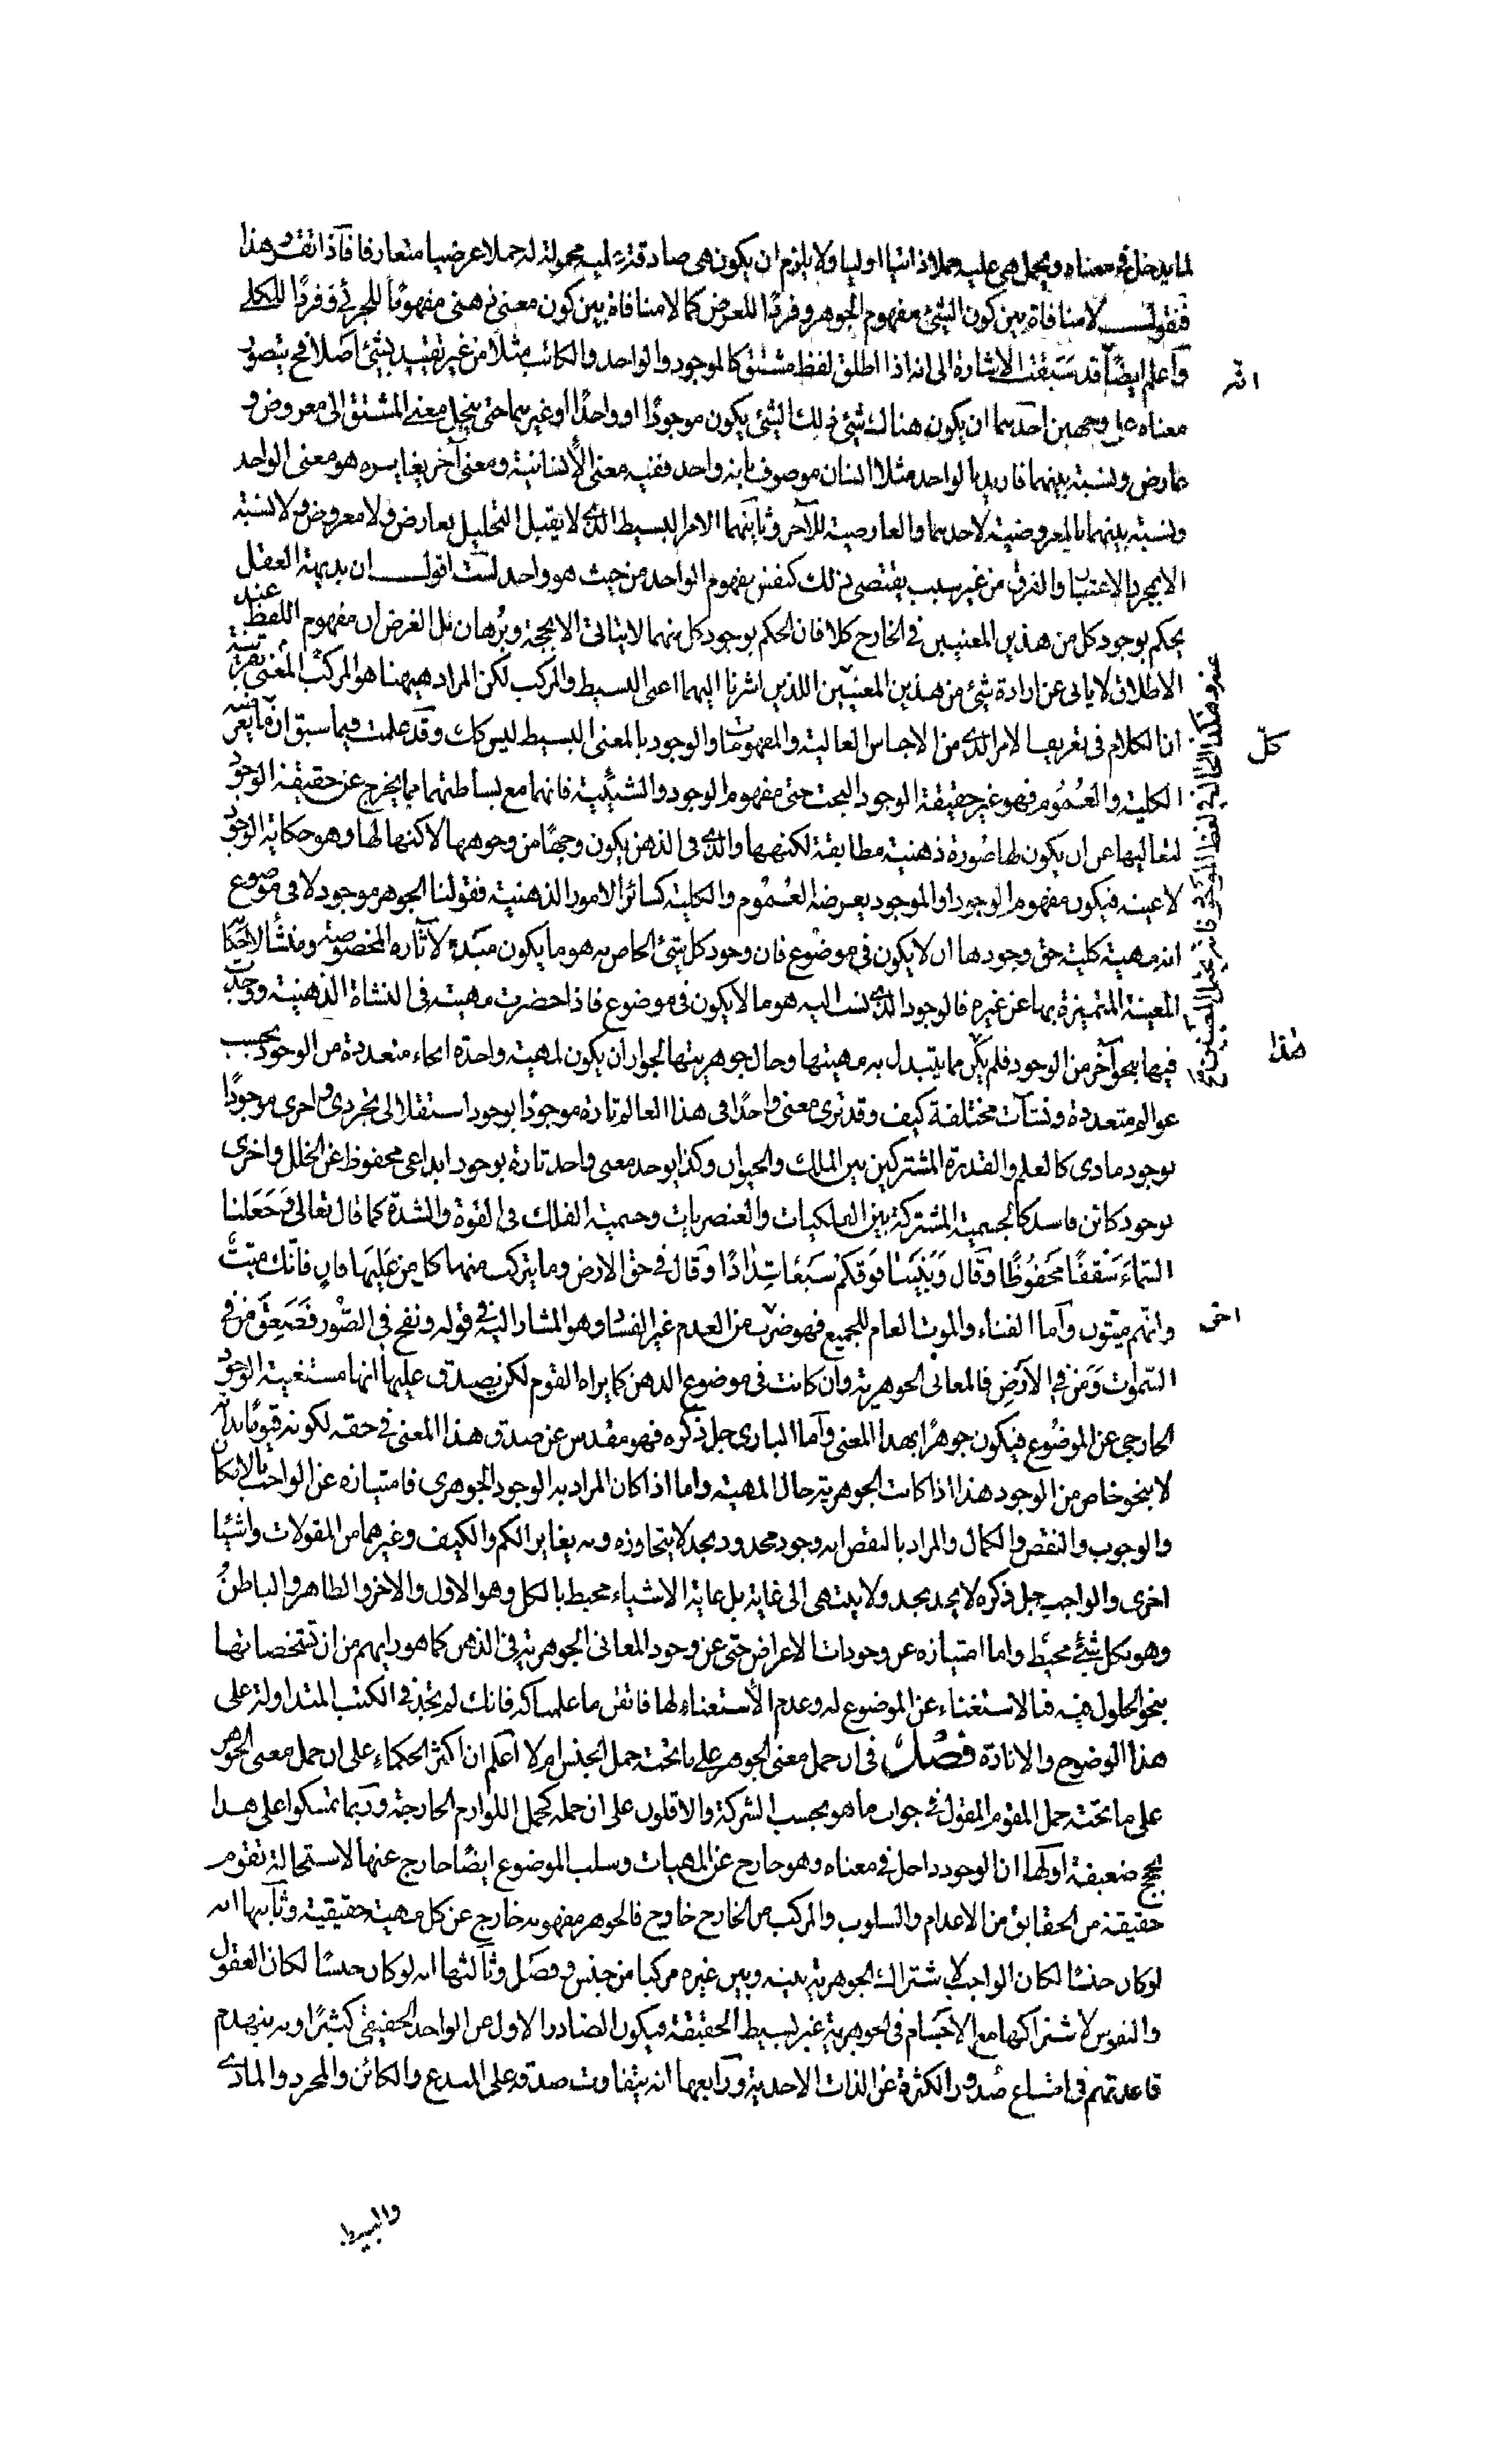 لما يدخل في معناه ويحمل هي عليه حملا ذاتيا اوليا ولا يلزم ان يكون هي صادقة عليه محمولة له حملا عرضيا متعارفا فاذا تقرر هذا
فنقول لا منافاة بين كون الشئ مفهوم الجوهر وفردًا للعرض كما لا منافاة بين كون معنى ذهنى مفهومًا للجزئى وفردًا للكلى
واعلم ايضًا قد سَبَقَت الاشارة الى انه اذا اطلق لفظ مشتق كالموجود والواحد والكاتب مثلا من غير تقييد بشئ اصلا فح يتصور
معناه على وجهين احدهما ان يكون هناك شئ ذلك الشئ يكون موجودًا او واحدًا او غيرهما حتى ينحل معنى المشتق الى معروض و
عارض ونسبة بينهما فاريد بالواحد مثلا انسان موصوف بانه واحد ففيه معنى الأنسانية ومعنى آخر يغايره هو معنى الواحد
ونسبة بينهما بالمعروضية لاحدهما والعارضية للآخر وثانيهما الامر البسيط الذى لا يقبل التحليل بعارض ولا معروض ولا نسبة
الا بمجرد الاعتبار والفرق من غير سبب يقتضى ذلك كنفس مفهوم الواحد من حيث هو واحد لست اقول ان بديهة العقل
يحكم بوجود كل من هذين المعنيين في الخارج كلا فان الحكم بوجود كل منهما لا يتاتى الا بحجة وبُرهان بل الغرض ان مفهوم اللفظ عند
الاطلاق لا يابى عن ارادة شئ من هذين المعنيّين اللذين اشرنا اليهما اعنى البسيط والمركب لكن المراد هيهنا هو المركب المعنى بقرينة
ان الكلام فى تعريف الامر الذى من الاجناس العالية والمفهومات والوجود بالمعنى البسيط ليس كك وقد علمت فيما سبق ان ما يعرضه
الكلية والعُمُوم فهو غير حقيقة الوجود البحت حتى مفهوم الوجود والشيئية فانهما مع بساطتهما مما يخرج عن حقيقة الوجود
لتعاليها عن ان يكون لها صُورة ذهنية مطابقة لكنهها والذى فى الذهن يكون وجهًا من وجوهها لا كنها لها وهو حكاية الوجود
لا عينه فيكون مفهوم الوجود او الموجود يعرضه العُمُوم والكلية كسائر الامور الذهنية فقولنا الجوهر موجود لا فى موضوع
انه مهية كلية حق وجودها ان لا يكون في موضوع فان وجود كل شئ الخاص به هو ما يكون مبدءً لآثاره المخصوصة ومنشأ لاحكامه
المعينة المتميزة بها عن غيره فالوجود الذى نسب اليه هو ما لا يكون فى موضوع فاذا حضرت مهيته فى النشاة الذهنية ووجدت
فيها بنحو آخر من الوجود فلم يكن مما يتبدل به مهيتها وحال جوهريتها لجواز ان يكون لمهية واحدة انحاء متعددة من الوجود بحسب
عوالم متعددة ونشآت مختلفة كيف وقد ترى معنى واحدًا فى هذا العالم تارة موجودًا بوجود استقلالى تجردى واخرى موجودًا
بوجود مادى كالعلم والقدرة المشتركين بين الملك والحيوان وكذا يوجد معنى واحد تارة بوجود ابداعى محفوظ عن الخلل واخرى
بوجود كائن فاسد كالجسمية المشتركة بين الفلكيات والعنصريات وجسمية الفلك فى القوة والشدة كما قال تعالى وَجَعَلنا
السّماءَ سَقفًا مَحفُوظًا وقال وَبَنَينا فَوقَكُم سَبعًا شِدادًا وقال فى حق الارض وما يتركب منها كل من عَلَيها فانٍ فانّك ميّتٌ
وانّهم ميتون وامّا الفناء والموت العام للجميع فهو ضرب من العدم غير الفساد وهو المشار اليه فى قوله ونفخ في الصّور فَصَعِقَ مَن في
السّموات وَمَن في الاَرض فالمعانى الجوهرية وان كانت فى موضوع الذهن كما يراه القوم لكن يصدق عليها انها مستغنية الوجود
الخارجى عن الموضُوع فيكون جوهرًا بهذا المعنى وامّا البارى جل ذكره فهو مقدس عن صدق هذا المعنى فى حقه لكونه قيومًا بذاته
لا بنحو خاص من الوجود هذا اذا كانت الجوهرية حال المهية واما اذا كان المراد به الوجود الجوهرى فامتيازه عن الواجب بالامكان
والوجوب والنقص والكمال والمراد بالنقص انه وجود محدود بحد لا يتجاوزه وبه يغاير الكم والكيف وغيرهما من المقولات واشيا
اخرى والواجب جل ذكره لا يحد بحد ولا ينتهى الى غاية بل غاية الاشياء محيط بالكل وهو الاوّل والاخر والظاهر والباطن
وهو بكل شئ محيط واما امتيازه عن وجودات الاعراض حتى عن وجود المعانى الجوهرية فى الذهن كما هو رايهم من ان تشخصاتها
بنحو الحلول فيه فبالاستغناء عن الموضوع له وعدم الأستغناء لها فاتقن ما علمناكه فانك لم تجد فى الكتب المتداولة على
هذا الوضوح والانارة فصل فى ان حمل معنى الجوهر على ما تحته حمل الجنس ام لا اعلم ان اكثر الحكماء على ان حمل معنى الجوهر
على ما تحته حمل المقوم المقول فى جواب ما هو بحسب الشركة والاقلون على ان حمله كحمل اللوازم الخارجة وربما تمسكوا على هذا
بحجج ضعيفة اولها ان الوجود داخل فى معناه وهو خارج عن المهيات وسلب الموضوع ايضًا خارج عنها لاستحالة تقوم
حقيقة من الحقايق من الاعدام والسلوب والمركب من الخارج خارج فالجوهر مفهومه خارج عن كل مهية حقيقية وثانيها انه
لو كان جنسًا لكان الواجب لاشتراك الجوهرية بينه وبين غيره مركبا من جنس وفصل وثالثها انه لو كان جنسًا لكان العقول
والنفوس لاشتراكها مع الاجسام فى الجوهرية غير بسيط الحقيقة فيكون الصادر الاول عن الواحد الحقيقى كثيرًا وبه ينهدم
قاعدتهم فى امتناع صُدور الكثرة عن الذات الاحدية ورابعها انه يتفاوت صدقه على المبدع والكائن والمجرد والمادى
والبسيط
كلّ
هذا